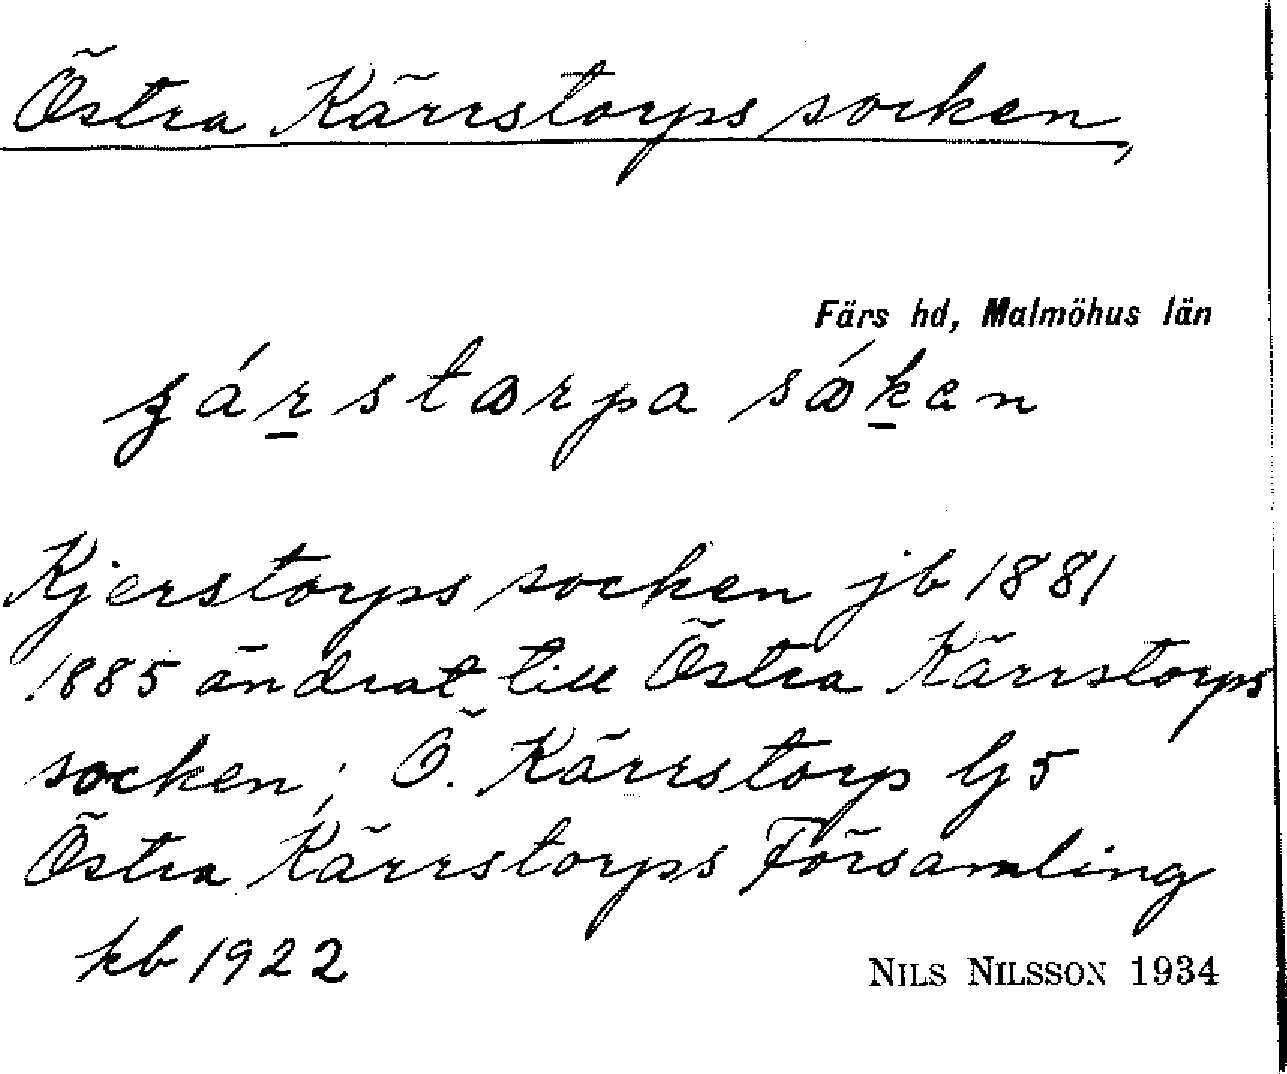 Östra Kärrstorps socken,
Färs hd, Malmöhus län
Kjerstorps socken jb 1881
1885 ändrat till Östra Kärrstorps
socken; Ö. Kärrstorp Gj5
Östra Kärrstorps Församling
kb 1922
NILS NILSSON 1934